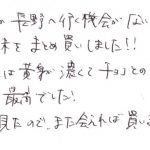 長野へ行く機会がない
末をまとめ買いしました!!
は黄身が濃くてチョコとの
最高でした!
見たので、また会えれば買い